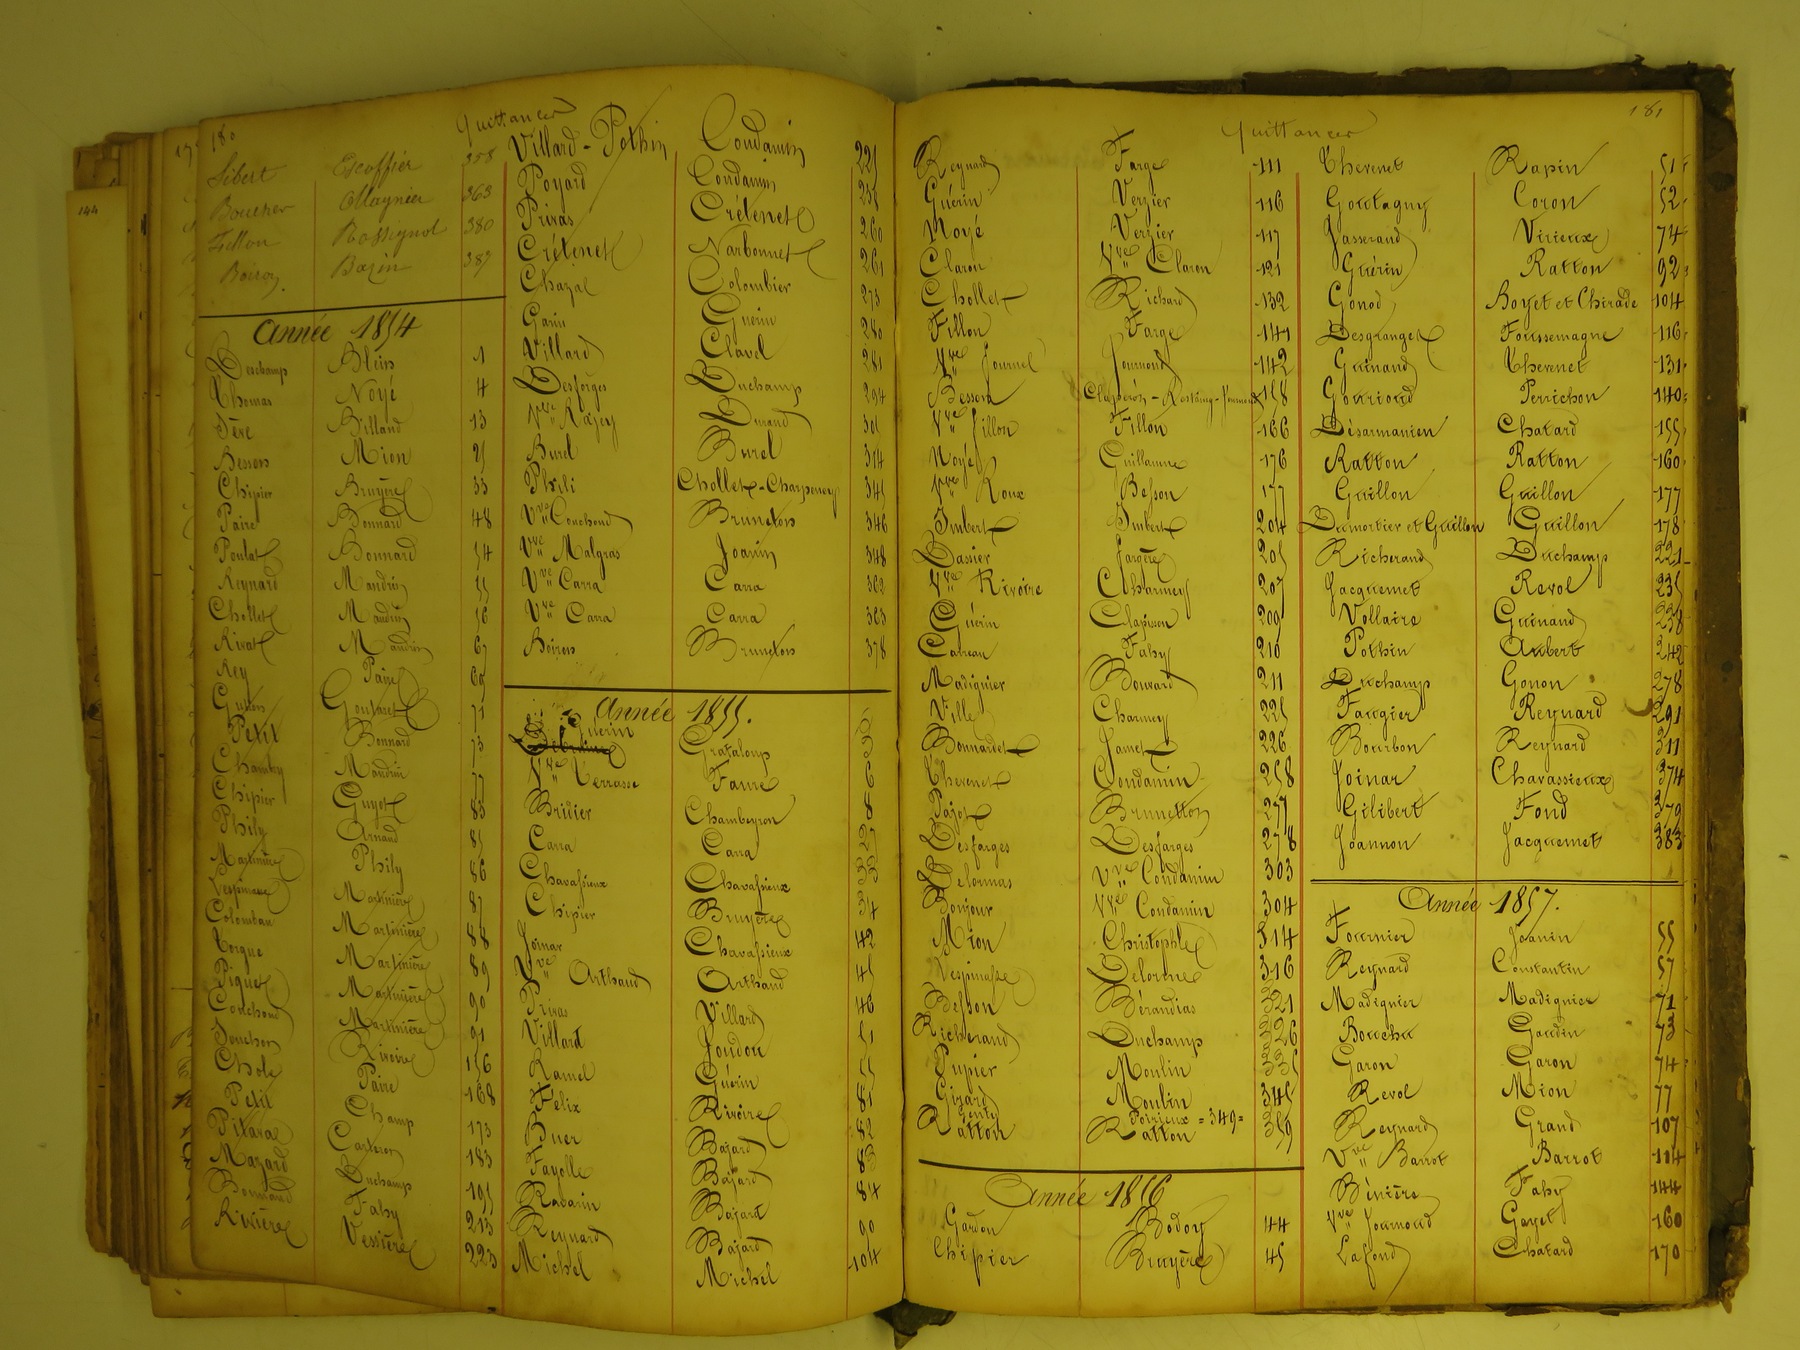 180
Quittances
Sibert Escoffier 358
Boucher Magnien 363
Fillon Rossignol 380
Boiron Bazin 389
Année 1854
Deschamp Bléin 1
Thomas Noyé 4
Fère Billand 13
Besson Mion 25
Chipier Bruyère 33
Paire Bonnard 48
Poulat Bonnard 54
Reynard Mandrin 55
Chollet Mandrin 56
Rivat Mandrin 67
Rey Paire 69
Goutaret 71
Petit Bonnard 75
Mandrin 77
Chipier Guyot 83
Phily Arnaud 85
Martinière Phily 86
Vespinasse Martinière 87
Colomban Martinière 88
Torgue Martinière 89
Piguet Martinière 90
Couchoud Martinière 91
Souchon Rivoire 156
Chole Paire 168
Petit Champ 173
Pitaval 183
Mazard Duchamp 195
Bonnand Fahy 213
Rivière Vessière 223
Villard-Pothin Condamin 221
Poyard Condamin 235
Privas Crétenet 260
Crétenet Narbonnet 261
Chazal Colombier 273
Garin Guerin 280
Villard Clavel 281
Desforges Duchamp 294
Vve Rajey Durand 301
Burel Burel 314
Phili Chollet-Charpenay 345
Vve Couchoud Bruneton 346
Vve Malgras Joanin 348
Vve Carra Carra 362
Vve Carra Carra 363
Boiron Brunelon 378
Année 1855.
Guerin Grataloup
Vve Terrasse Faure 6
Bridier Chambeyron 8
Carra Carra 27
Chavassieux Chavassieux 33
Chipier Bruyère 34
Joinar Chavassieux 42
Vve Arthaud Arthaud 45
Privas Villard 46
Villard Joudou 51
Ramel Guérin 55
Félix Rivoire 81
Buer Bajard 82
Fayolle Bajard 83
Ravarin Bajard 84
Reynard Bajard 90
Michel Michel 104
181
Quittances
Reynard Farge 111
Guérin Verzier 116
Noyé Verzier 117
Claron Vve Claron 121
Chollet Richard 132
Fillon Farge 141
Vve Journel Journoud 142
Besson 158
Vve Fillon Fillon 166
Noyé Guillaume 176
Vve Roux Besson 177
Imbert Imbert 204
Jarère 205
Vve Rivoire Charmey 207
Guérin Clapisson 209
Careau Fahy 210
Madignier Bouvard 211
Ville Charmey 225
Bonnardet Jamet 226
Thevenet Condamin 258
Pajot Brunetton 277
Desfarges Desfarges 278
Delormas Vve Condamin 303
Bonjour Vve Condamin 304
Mion Christophle 314
Vespinasse Delorme 316
Besson Bérandias 321
Richerand Duchamp 326
Pupier Moulin 335
Girard Moulin 345
Genty Poirieux = 349 =
Ratton Ratton 359
Année 1856
Gardon Bodoy 44
Chipier Bruyère 45
Thevenet Rapin 51
Gouttagny Coron 52
Jasserand Virieux 74
Guérin Ratton 92
Gonod Boyet et Chirade 104
Desgranges Foussemagne 116
Guinand Thevenet 131
Gourioud Perrichon 140
Désarmanien Chatard 155
Ratton Ratton 160
Guillon Guillon 177
Dumortier et Guillon Guillon 178
Richerand Duchamp 221
Jacquemet Revol 235
Vollaire Guinand 238
Pothin Aubert 242
Duchamp Gonon 278
Faugier Reynard 291
Bourbon Reynard 311
Joinar Chavassieux 374
Gilibert Fond 379
Joannon Jacquemet 383
Année 1857.
Fournier Joanin 55
Reynard Constantin 57
Madignier Madignier 71
Bouchu Gardin 73
Garon Garon 74
Revol Mion 77
Reynard Grand 107
Vve Barrot Barrot 114
Bénière Fahy 144
Vve Journoud Gayet 160
Lafond Chatard 170